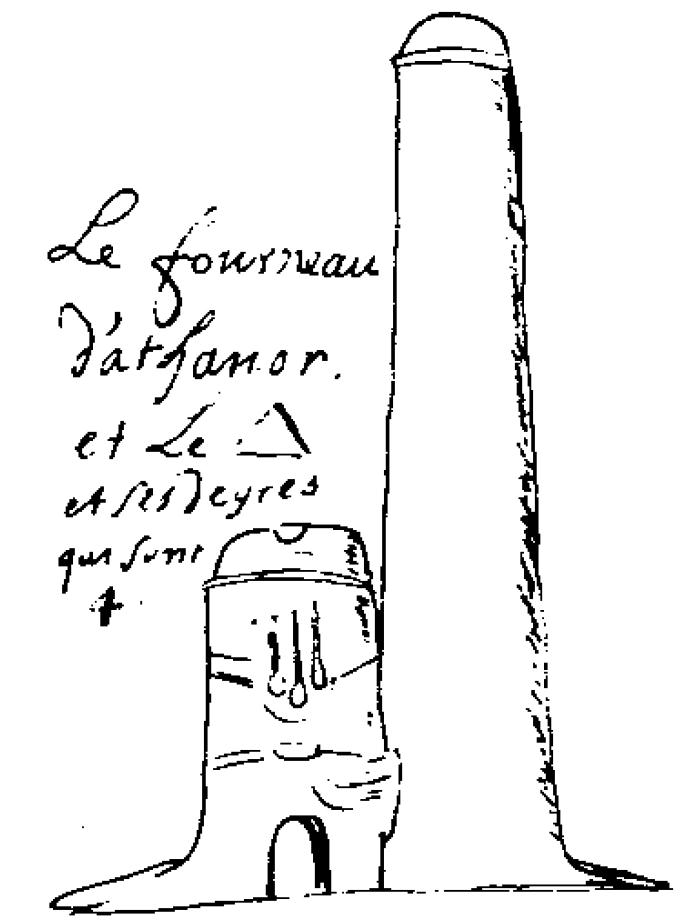 Le fourneau
d'athanor.
et Le △
et ses deyres
qui sunt
4.